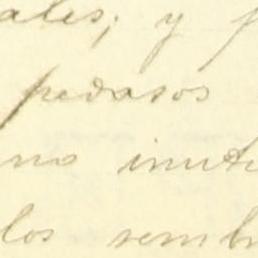 ales; y p
pedasos
no inuti
los semb